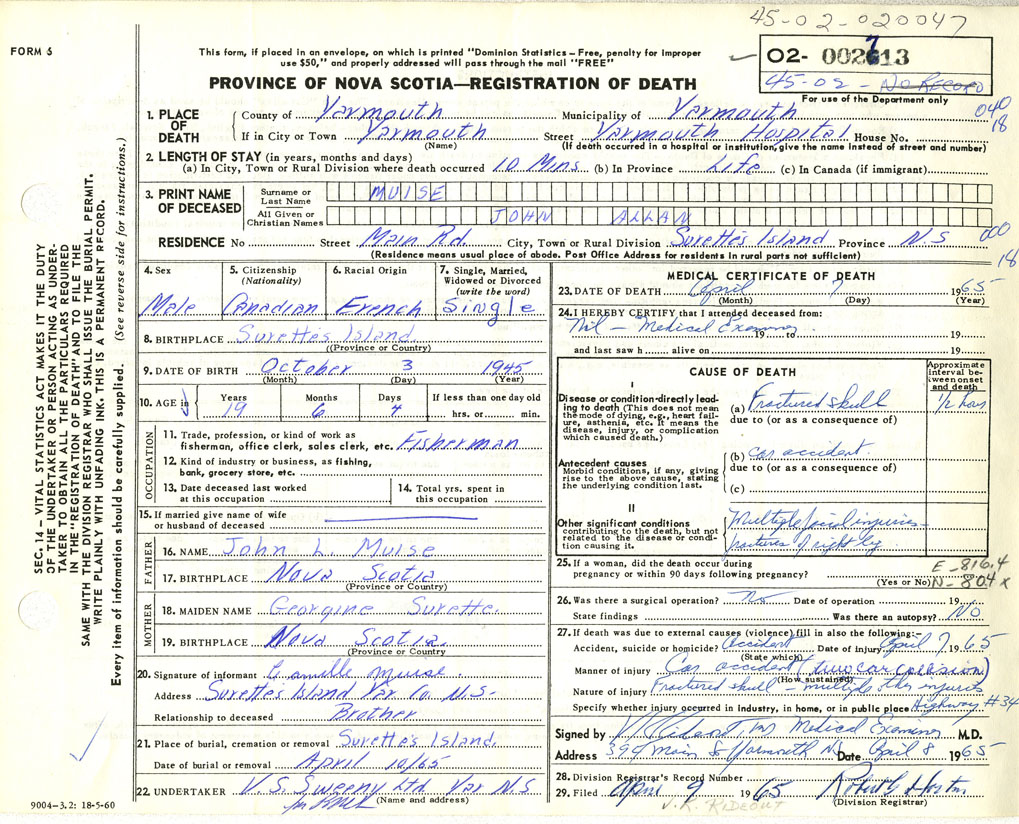 45-02-020047
FORM 6
This form, if placed in an envelope, on which is printed "Dominion Statistics – Free, penalty for improper
use $50," and properly addressed will pass through the mail "FREE"
02- 002713
45-02 - No RECORD
For use of the Department only
PROVINCE OF NOVA SCOTIA—REGISTRATION OF DEATH
1. PLACE OF DEATH
County of Yarmouth Municipality of Yarmouth 040
If in City or Town Yarmouth Street Yarmouth Hospital House No. 18
(Name) (If death occurred in a hospital or institution, give the name instead of street and number)
2. LENGTH OF STAY (in years, months and days)
(a) In City, Town or Rural Division where death occurred 10 Mins (b) In Province Life (c) In Canada (if immigrant)
3. PRINT NAME OF DECEASED
Surname or Last Name MUISE
All Given or Christian Names JOHN ALLAN
RESIDENCE No Street Main Rd. City, Town or Rural Division Surette's Island Province N.S 000
(Residence means usual place of abode. Post Office Address for residents in rural parts not sufficient) 18
4. Sex Male
5. Citizenship (Nationality) Canadian
6. Racial Origin French
7. Single, Married, Widowed or Divorced (write the word) Single
8. BIRTHPLACE Surette's Island
(Province or Country)
9. DATE OF BIRTH October 3 1945
(Month) (Day) (Year)
10. AGE in Years 19 Months 6 Days 4 If less than one day old hrs. or min.
OCCUPATION
11. Trade, profession, or kind of work as
fisherman, office clerk, sales clerk, etc. Fisherman
12. Kind of industry or business, as fishing,
bank, grocery store, etc.
13. Date deceased last worked
at this occupation
14. Total yrs. spent in
this occupation
15. If married give name of wife
or husband of deceased
FATHER
16. NAME John L. Muise
17. BIRTHPLACE Nova Scotia
(Province or Country)
MOTHER
18. MAIDEN NAME Georgine Surette
19. BIRTHPLACE Nova Scotia
(Province or Country)
20. Signature of informant Camille Muise
Address Surette's Island Yar Co N.S-
Relationship to deceased Brother
21. Place of burial, cremation or removal Surette's Island.
Date of burial or removal April 10/65
22. UNDERTAKER V.S. Sweeny Ltd Yar N.S
(Name and address)
9004-3.2: 18-5-60
MEDICAL CERTIFICATE OF DEATH
23. DATE OF DEATH April 7 1965
(Month) (Day) (Year)
24. I HEREBY CERTIFY that I attended deceased from:
Nil – Medical Examiner 19 to 19
and last saw h alive on 19
CAUSE OF DEATH
Approximate interval between onset and death
I
Disease or condition directly leading to death (This does not mean the mode of dying, e.g., heart failure, asthenia, etc. It means the disease, injury, or complication which caused death.)
(a) Fractured skull 1/2 hour
due to (or as a consequence of)
Antecedent causes
Morbid conditions, if any, giving rise to the above cause, stating the underlying condition last.
(b) car accident.
due to (or as a consequence of)
(c)
II
Other significant conditions
contributing to the death, but not related to the disease or condition causing it.
Multiple facial injuries-
fractures of right leg
25. If a woman, did the death occur during
pregnancy or within 90 days following pregnancy? (Yes or No)
E-816.4
N-804x
26. Was there a surgical operation? No Date of operation 19
State findings Was there an autopsy? No
27. If death was due to external causes (violence) fill in also the following:-
Accident, suicide or homicide? Accident Date of injury April 7 1965
(State which)
Manner of injury Car accident (two car collision)
(How sustained)
Nature of injury Fractured skull – multiple other injuries
Specify whether injury occurred in industry, in home, or in public place Highway #34
Signed by Medical Examiner M.D.
Address 394 Main St Yarmouth NS Date April 8 1965
28. Division Registrar's Record Number
29. Filed April 9 1965
(Division Registrar)
V.R. RIDEOUT
SEC. 14 – VITAL STATISTICS ACT MAKES IT THE DUTY
OF THE UNDERTAKER OR PERSON ACTING AS UNDER-
TAKER TO OBTAIN ALL THE PARTICULARS REQUIRED
IN THE "REGISTRATION OF DEATH" AND TO FILE THE
SAME WITH THE DIVISION REGISTRAR WHO SHALL ISSUE THE BURIAL PERMIT.
WRITE PLAINLY WITH UNFADING INK. THIS IS A PERMANENT RECORD.
Every item of information should be carefully supplied. (See reverse side for instructions.)